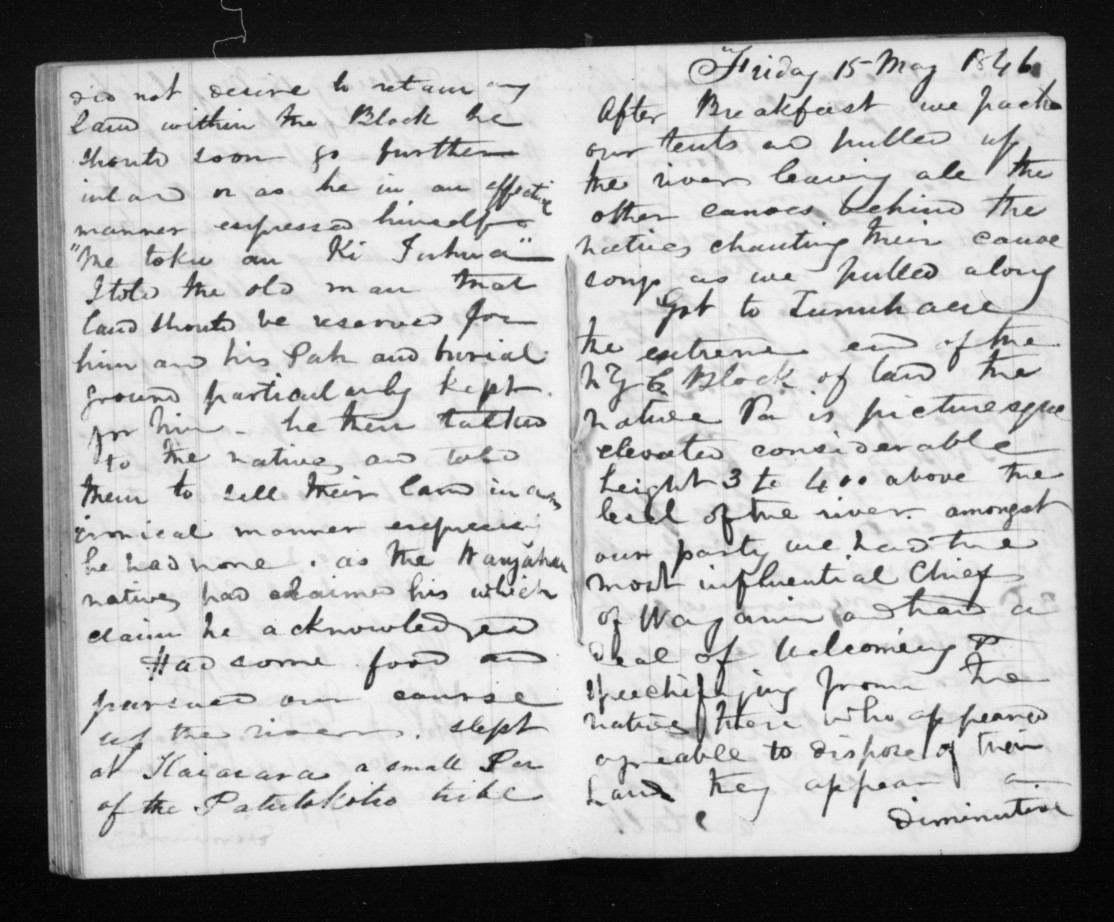 did not desire to retain any
land within the Block he
should soon go further
inland or as he in an affective
manner expressed himself
"Me toku au Ki
I told the old man that
land should be reserved for
him and his Pah and burial
ground particularly kept
for him. he then talked
to the natives and told
them to sell their land in an
ironical manner expressing
he had none. as the
natives had claimed his which
claim he acknowledged
Had some food and
pursued our course
up the river. slept
at Kaiarara a small Pa
of the tribe
Friday 15 May 1846
After Breakfast we packed
our tents and pulled up
the river leaving all the
other canoes behind the
natives chanting their canoe
songs as we pulled along
Got to Tunuhaere
the extreme end of the
NZ C Block of land the
native Pa is picturesque
elevated considerable
height 3 to 400 above the
level of the river amongst
our party we had the
most influential Chiefs
of and had a
deal of Welcoming &
speechifying from the
natives here who appeared
agreeable to dispose of their
Land they appear a
diminutive